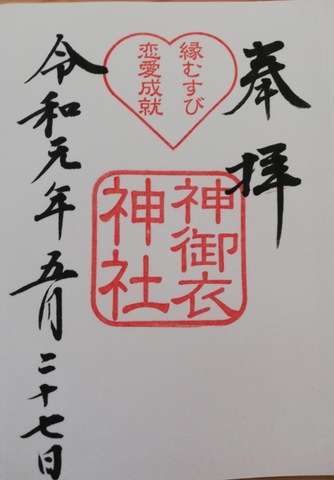 奉拝
縁むすび
恋愛成就
神御衣
神社
令和元年五月二十七日